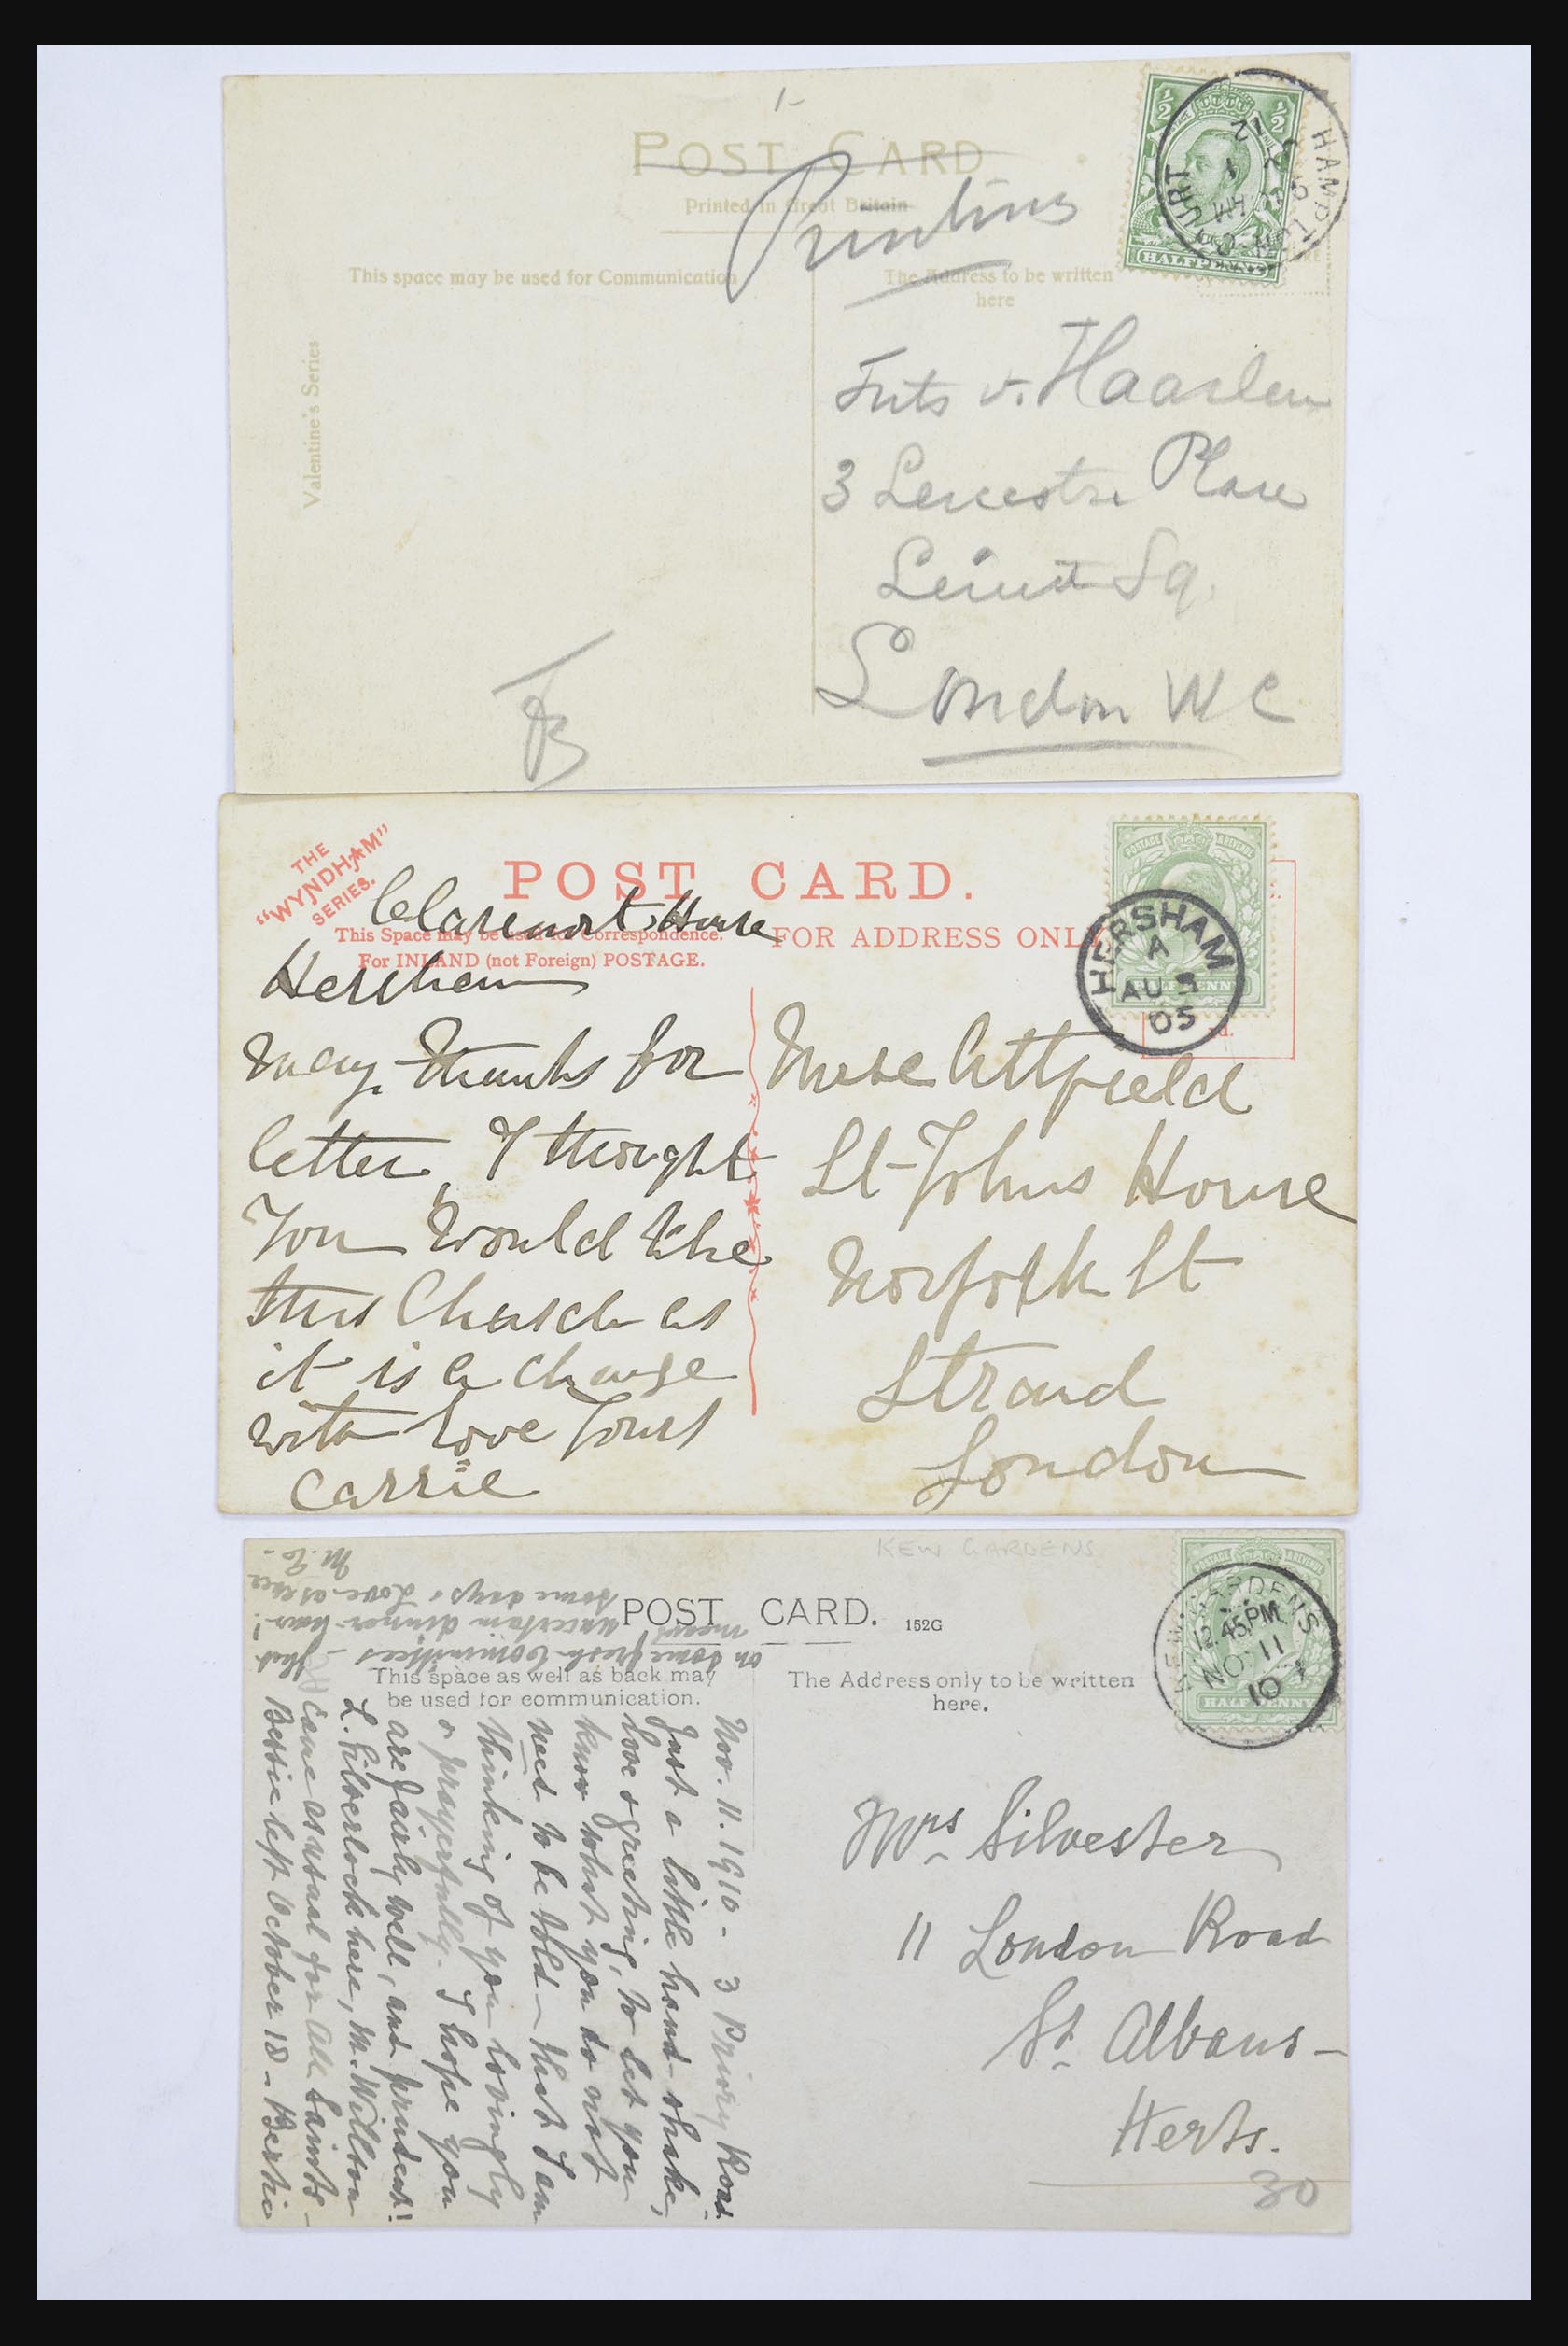 1-
POST CARD
Printed in Great Britain
This space may be used for Communication
The Address to be written
here
Valentine's Series
½ ½
HALFPENNY
HAMPTON COURT
Frits v. Haarlem
3 Leicester Place
Sq.
London WC
THE
"WYNDHAM"
SERIES.
POST CARD.
This Space may be used for Correspondence.
For INLAND (not Foreign) POSTAGE.
FOR ADDRESS ONLY
POSTAGE REVENUE
HALFPENNY
HERSHAM
A
AU 3
05
Claremont House
Hersham
many thanks for
letter, I thought
You would like
this Church as
it is a change
with love Yours
Carrie
Nurse Attfield
St Johns House
Norfolk St
Strand
London
KEW GARDENS
POST CARD. 152G
This space as well as back may
be used for communication.
The Address only to be written
here.
POSTAGE REVENUE
HALFPENNY
KEW GARDENS
12.45PM
NO 11
10
Nov. 11. 1910 - 3 Priory Road
Just a little hand-shake,
love & greeting, to let you
know what you do not
need to be told - that I am
thinking of you lovingly
& prayerfully. I hope you
are fairly well, and prudent!
L. Silverlock here, M. Willson
came as usual for All Saints -
Bessie left October 18 - Bertie
on some fresh Committees - that
means uncertain dinner-hour!
some days. Love as ever
Mrs Silvester
11 London Road
St. Albans -
Herts.
30